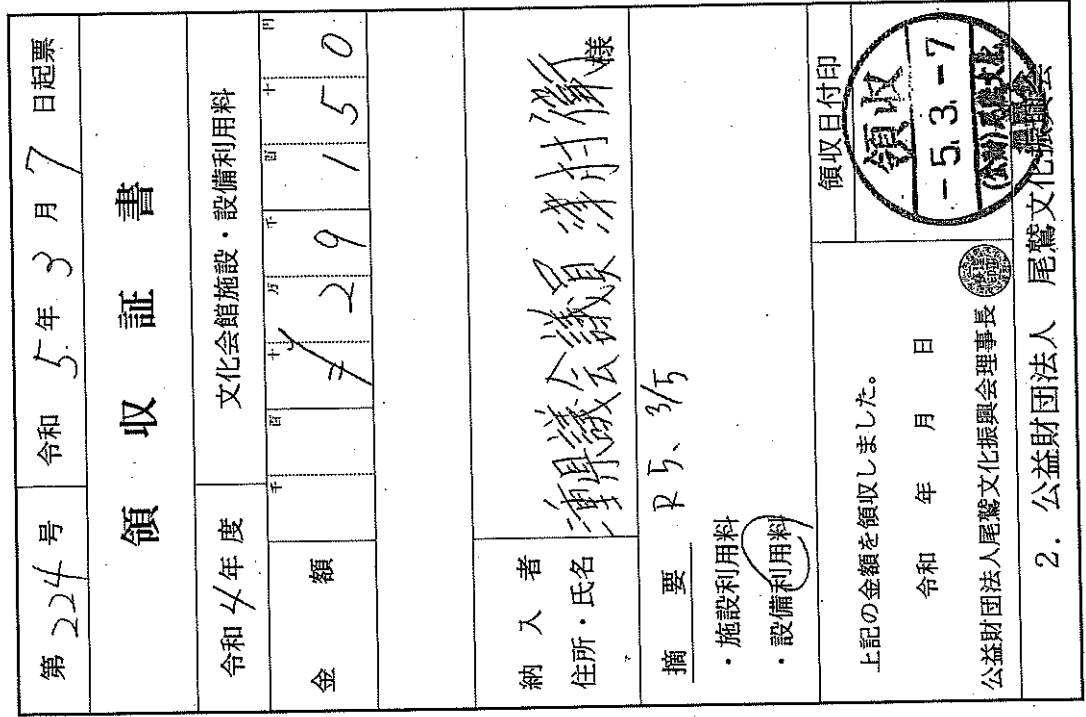 第 224 号 令和 5年 3月 7日起票
領収証書
令和 4年度 文化会館施設・設備利用料
金額 千 百 十 万 千 百 十 円
2 9 1 5 0
納入者
住所・氏名
県議会議員 津村 衛 様
摘要 R5、3/5
・施設利用料
・設備利用料
上記の金額を領収しました。
令和 年 月 日
公益財団法人尾鷲文化振興会理事長
領収日付印
領収
-5.3.-7
(公財)尾鷲文化
振興会
2. 公益財団法人 尾鷲文化振興会